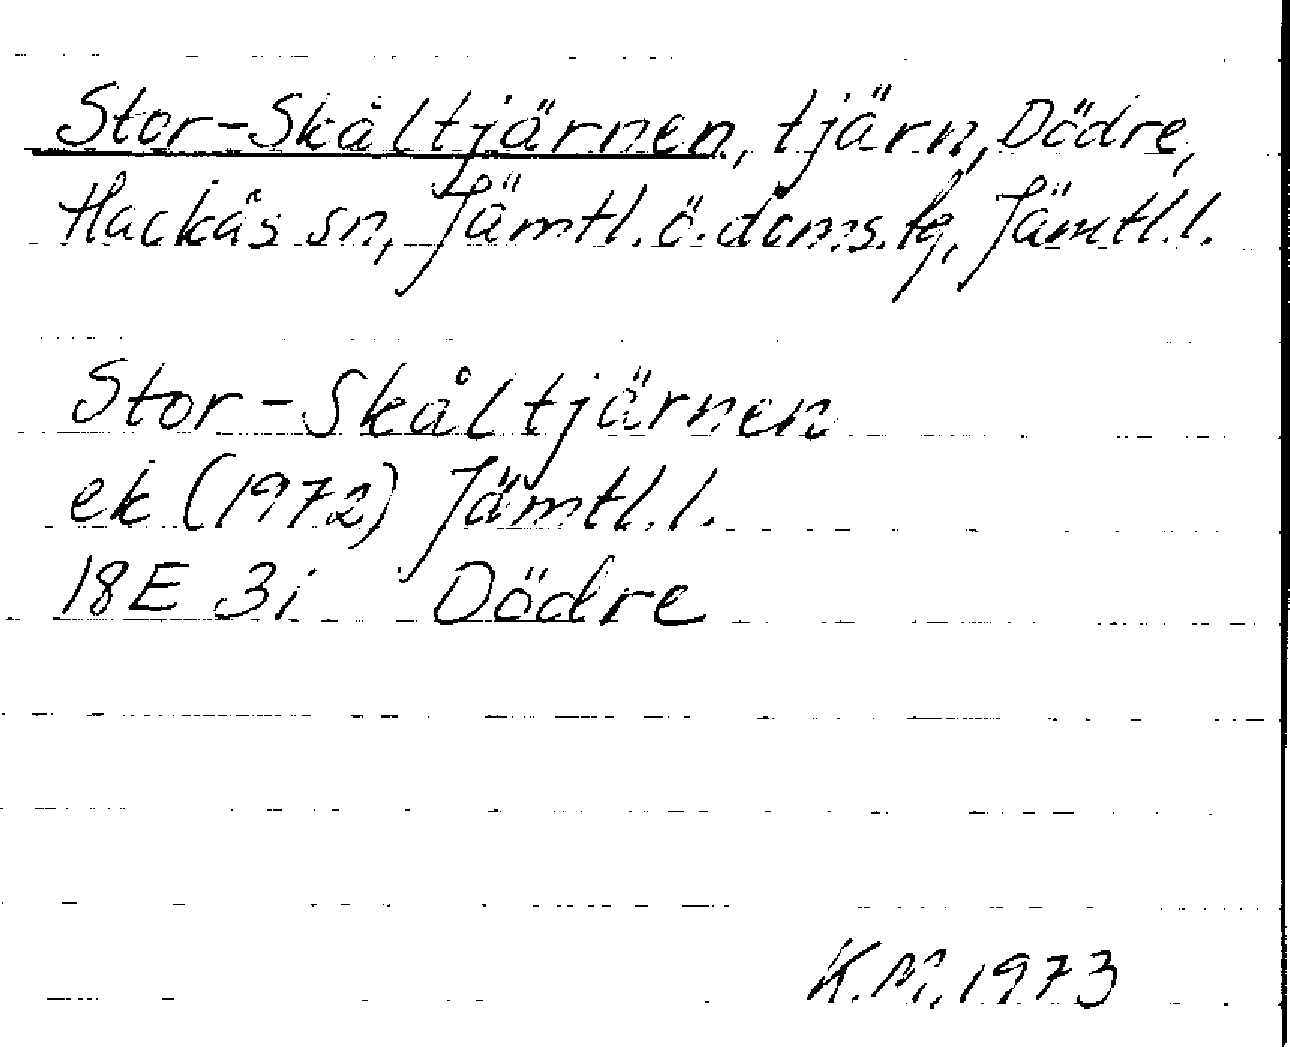 Stor-Skåltjärnen, tjärn, Dödre,
Hackås sn, Jämtl. ö. doms. fg, Jämtl. l.
Stor-Skåltjärnen
ek (1972) Jämtl. l.
18E 3i Dödre
K.M. 1973